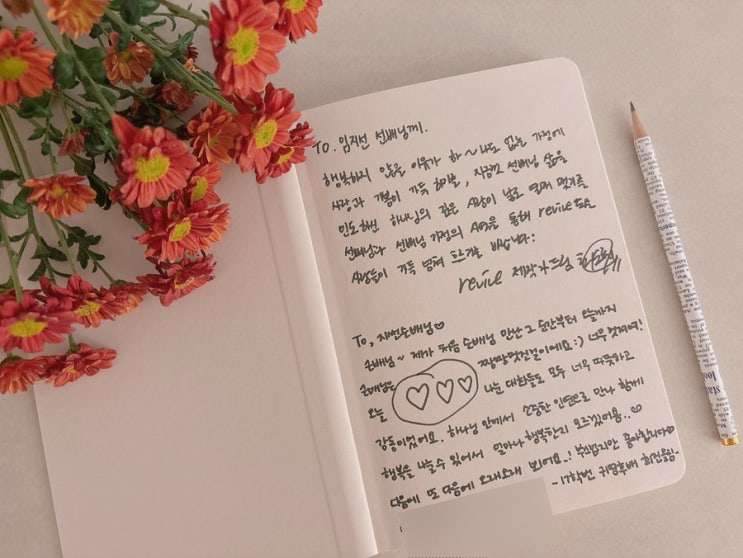 To. 임지선 선배님께.
행복하지 않을 이유가 하~나도 없는 가정에
사랑과 기쁨이 가득 하기를, 지금껏 선배님 삶을
인도하신 하나님의 깊은 사랑이 날로 열매 맺기를
선배님과 선배님 가정의 사역을 통해 revive 되는
사람들이 가득 넘쳐 흐르기를 바랍니다:
revive 제작자드림
To, 지선선배님♡
선배님~ 제가 처음 선배님 만난 그 순간부터 오늘까지
선배님은 짱짱멋진분이에요:) 너무 멋져여!
오늘 나눈 대화들도 모두 너무 따뜻하고
감동이었어요. 하나님 안에서 소중한 인연으로 만나 함께
행복을 나눌수 있어서 얼마나 행복한지 모르겠어용..♡
다음에 또 다음에 오래오래 보아요..! 부끄럽지만 좋아합니다♡
-17학번 귀염후배 희진올림.